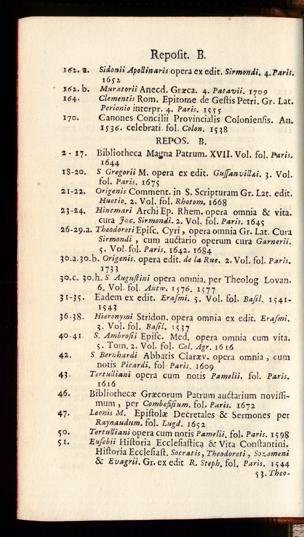 Reposit. B.
162. a. Sidonii Apollinaris opera ex edit. Sirmondi. 4. Paris.
1652
162. b. Muratorii Anecd. Græca. 4. Patavii. 1709
164. Clementis Rom. Epitome de Gestis Petri. Gr. Lat.
Perionio interpr. 4. Paris. 1555
170. Canones Concilii Provincialis Coloniensis. An.
1536. celebrati. fol. Colon. 1538
REPOS. B.
2 - 17. Bibliotheca Magna Patrum. XVII. Vol. fol. Paris.
1644
18-20. S Gregorii M. opera ex edit. Gussanvillæi. 3. Vol.
fol. Paris. 1675
21-22. Origenis Comment. in S. Scripturam Gr. Lat. edit.
Huetio. 2. Vol. fol. Rhotom. 1668
23-24. Hincmari Archi Ep. Rhem. opera omnia & vita.
cura Jac. Sirmondi. 2. Vol. fol. Paris. 1645
26-29.a. Theodoreti Episc. Cyri, opera omnia Gr. Lat. Cura
Sirmondi, cum auctario operum cura Garnerii.
5. Vol. fol. Paris. 1642. 1684
30.a.30.b. Origenis. opera edit. de la Rue. 2. Vol. fol. Paris.
1733
30.c. 30.h. S. Augustini opera omnia, per Theolog Lovan.
6. Vol. fol. Antw. 1576. 1577
31-35. Eadem ex edit. Erasmi. 5. Vol. fol. Basil. 1541-
1543
36-38. Hieronymi Stridon. opera omnia ex edit. Erasmi.
3. Vol. fol. Basil. 1537
40-41. S. Ambrosii Episc. Med. opera omnia cum vita.
5. Tom. 2. Vol. fol. Col. Agr. 1616
42. S. Bernhardi Abbatis Claræv. opera omnia, cum
notis Picardi. fol Paris. 1609
43. Tertulliani opera cum notis Pamelii. fol. Paris.
1616
46. Bibliothecæ Græcorum Patrum auctarium novissi-
mum, per Combefisium. fol. Paris. 1672
47. Leonis M. Epistolæ Decretales & Sermones per
Raynaudum. fol. Lugd. 1652
50. Tertulliani opera cum notis Pamelii. fol. Paris. 1598
51. Eusebii Historia Ecclesiastica & Vita Constantini.
Historia Ecclesiast. Socratis, Theodoreti, Sozomeni
& Evagrii. Gr. ex edit R. Steph. fol. Paris. 1544
53. Theo-